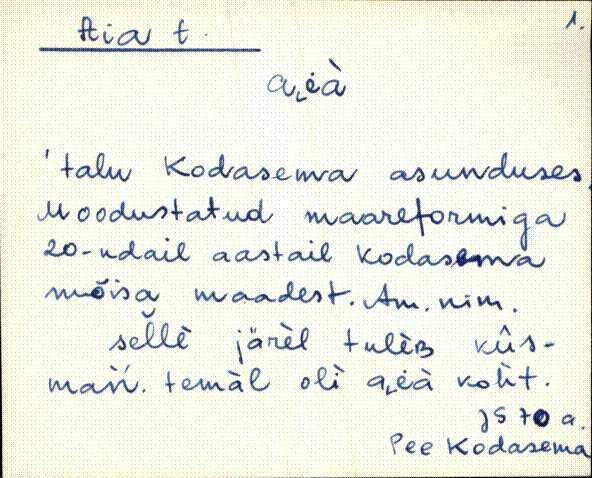 1.
Aia t.
a̭i̭à
'talu Kodasema asunduses.
Moodustatud maareformiga
20-ndail aastail Kodasema
mõisa maadest. Am. nim.
sel̆lè järèl tulèʙ kûs-
mań. temàl olì a̭i̭à koht.
JS 70 a.
Pee Kodasema